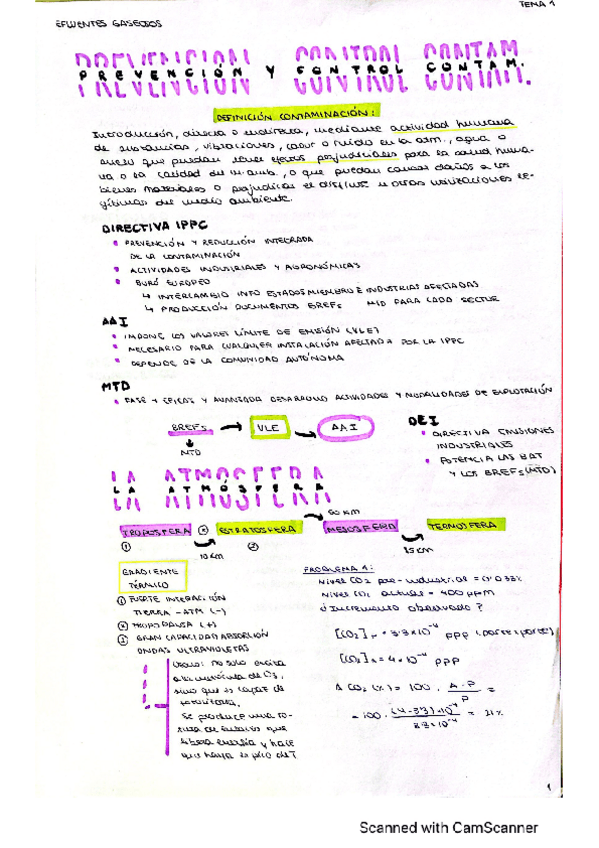 TEMA 1
EFLUENTES GASEOSOS
PREVENCIÓN Y CONTROL CONTAM.
DEFINICIÓN CONTAMINACIÓN:
Introducción, directa o indirecta, mediante actividad humana
de sustancias, vibraciones, calor o ruido en la atm., agua o
suelo que puedan tener efectos perjudiciales para la salud huma-
na o la calidad del m.amb., o que puedan causar daños a los
bienes materiales o perjudicar el disfrute u otras utilizaciones le-
gítimas del medio ambiente.
DIRECTIVA IPPC
PREVENCIÓN Y REDUCCIÓN INTEGRADA
DE LA CONTAMINACIÓN
ACTIVIDADES INDUSTRIALES Y AGRONÓMICAS
BURÓ EUROPEO
↳ INTERCAMBIO INFO ESTADOS MIEMBRO E INDUSTRIAS AFECTADAS
↳ PRODUCCIÓN DOCUMENTOS BREFs MTD PARA CADA SECTOR
AAI
IMPONE LOS VALORES LÍMITE DE EMISIÓN (VLE)
NECESARIO PARA CUALQUIER INSTALACIÓN AFECTADA POR LA IPPC
DEPENDE DE LA COMUNIDAD AUTÓNOMA
MTD
FASE + EFICAZ Y AVANZADA DESARROLLO ACTIVIDADES Y MODALIDADES DE EXPLOTACIÓN
BREFs → VLE → AAI
MTD
DEI
DIRECTIVA EMISIONES
INDUSTRIALES
POTENCIA LAS BAT
Y LOS BREFs (MTD)
LA ATMÓSFERA
TROPOSFERA ② ESTRATOSFERA MESOSFERA TERMOSFERA
① 10 km 85 km
GRADIENTE
TÉRMICO
① FUERTE INTERACCIÓN
TIERRA - ATM (-)
② TROPOPAUSA (+)
③ GRAN CAPACIDAD ABSORCIÓN
ONDAS ULTRAVIOLETAS
no solo excita
a la molécula de O₃,
sino que es capaz de
Se produce una ro-
tura de enlaces que
libera energía y hace
que haya un pico de T
PROBLEMA 1:
Nivel CO₂ pre-industrial = 0'033%
Nivel CO₂ actual = 400 ppm
¿Incremento observado?
[CO₂]ₚ = 3'3×10⁻⁴ ppp (parte x parte)
[CO₂]ₐ = 4×10⁻⁴ ppp
Δ CO₂ (%) = 100 · A-P / P =
= 100 · (4-3'3)·10⁻⁴ / 3'3×10⁻⁴ = 21%
1
Scanned with CamScanner